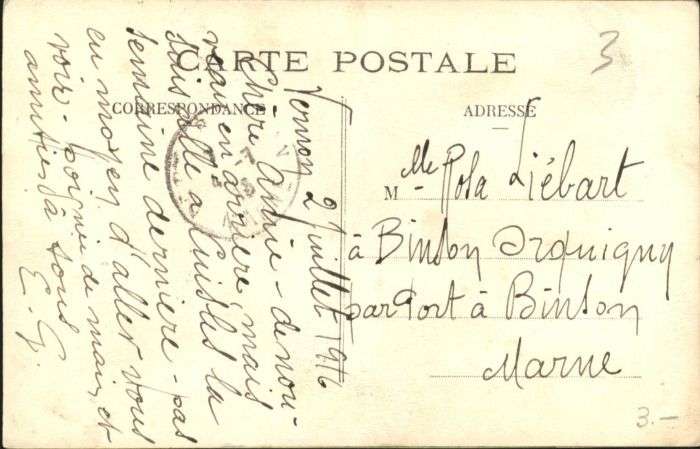 CARTE POSTALE
CORRESPONDANCE
ADRESSE
3
Vernon 2 Juillet 1916
Chère Amie - de nou-
veau en arrière, mais
suis allé à Cuisles la
semaine dernière - pas
eu moyen d'aller vous
voir. poignée de main, et
amitiés à tous
E. G.
M lle Rosa Liébart
à Binson Orquigny
par Port à Binson
Marne
3.-